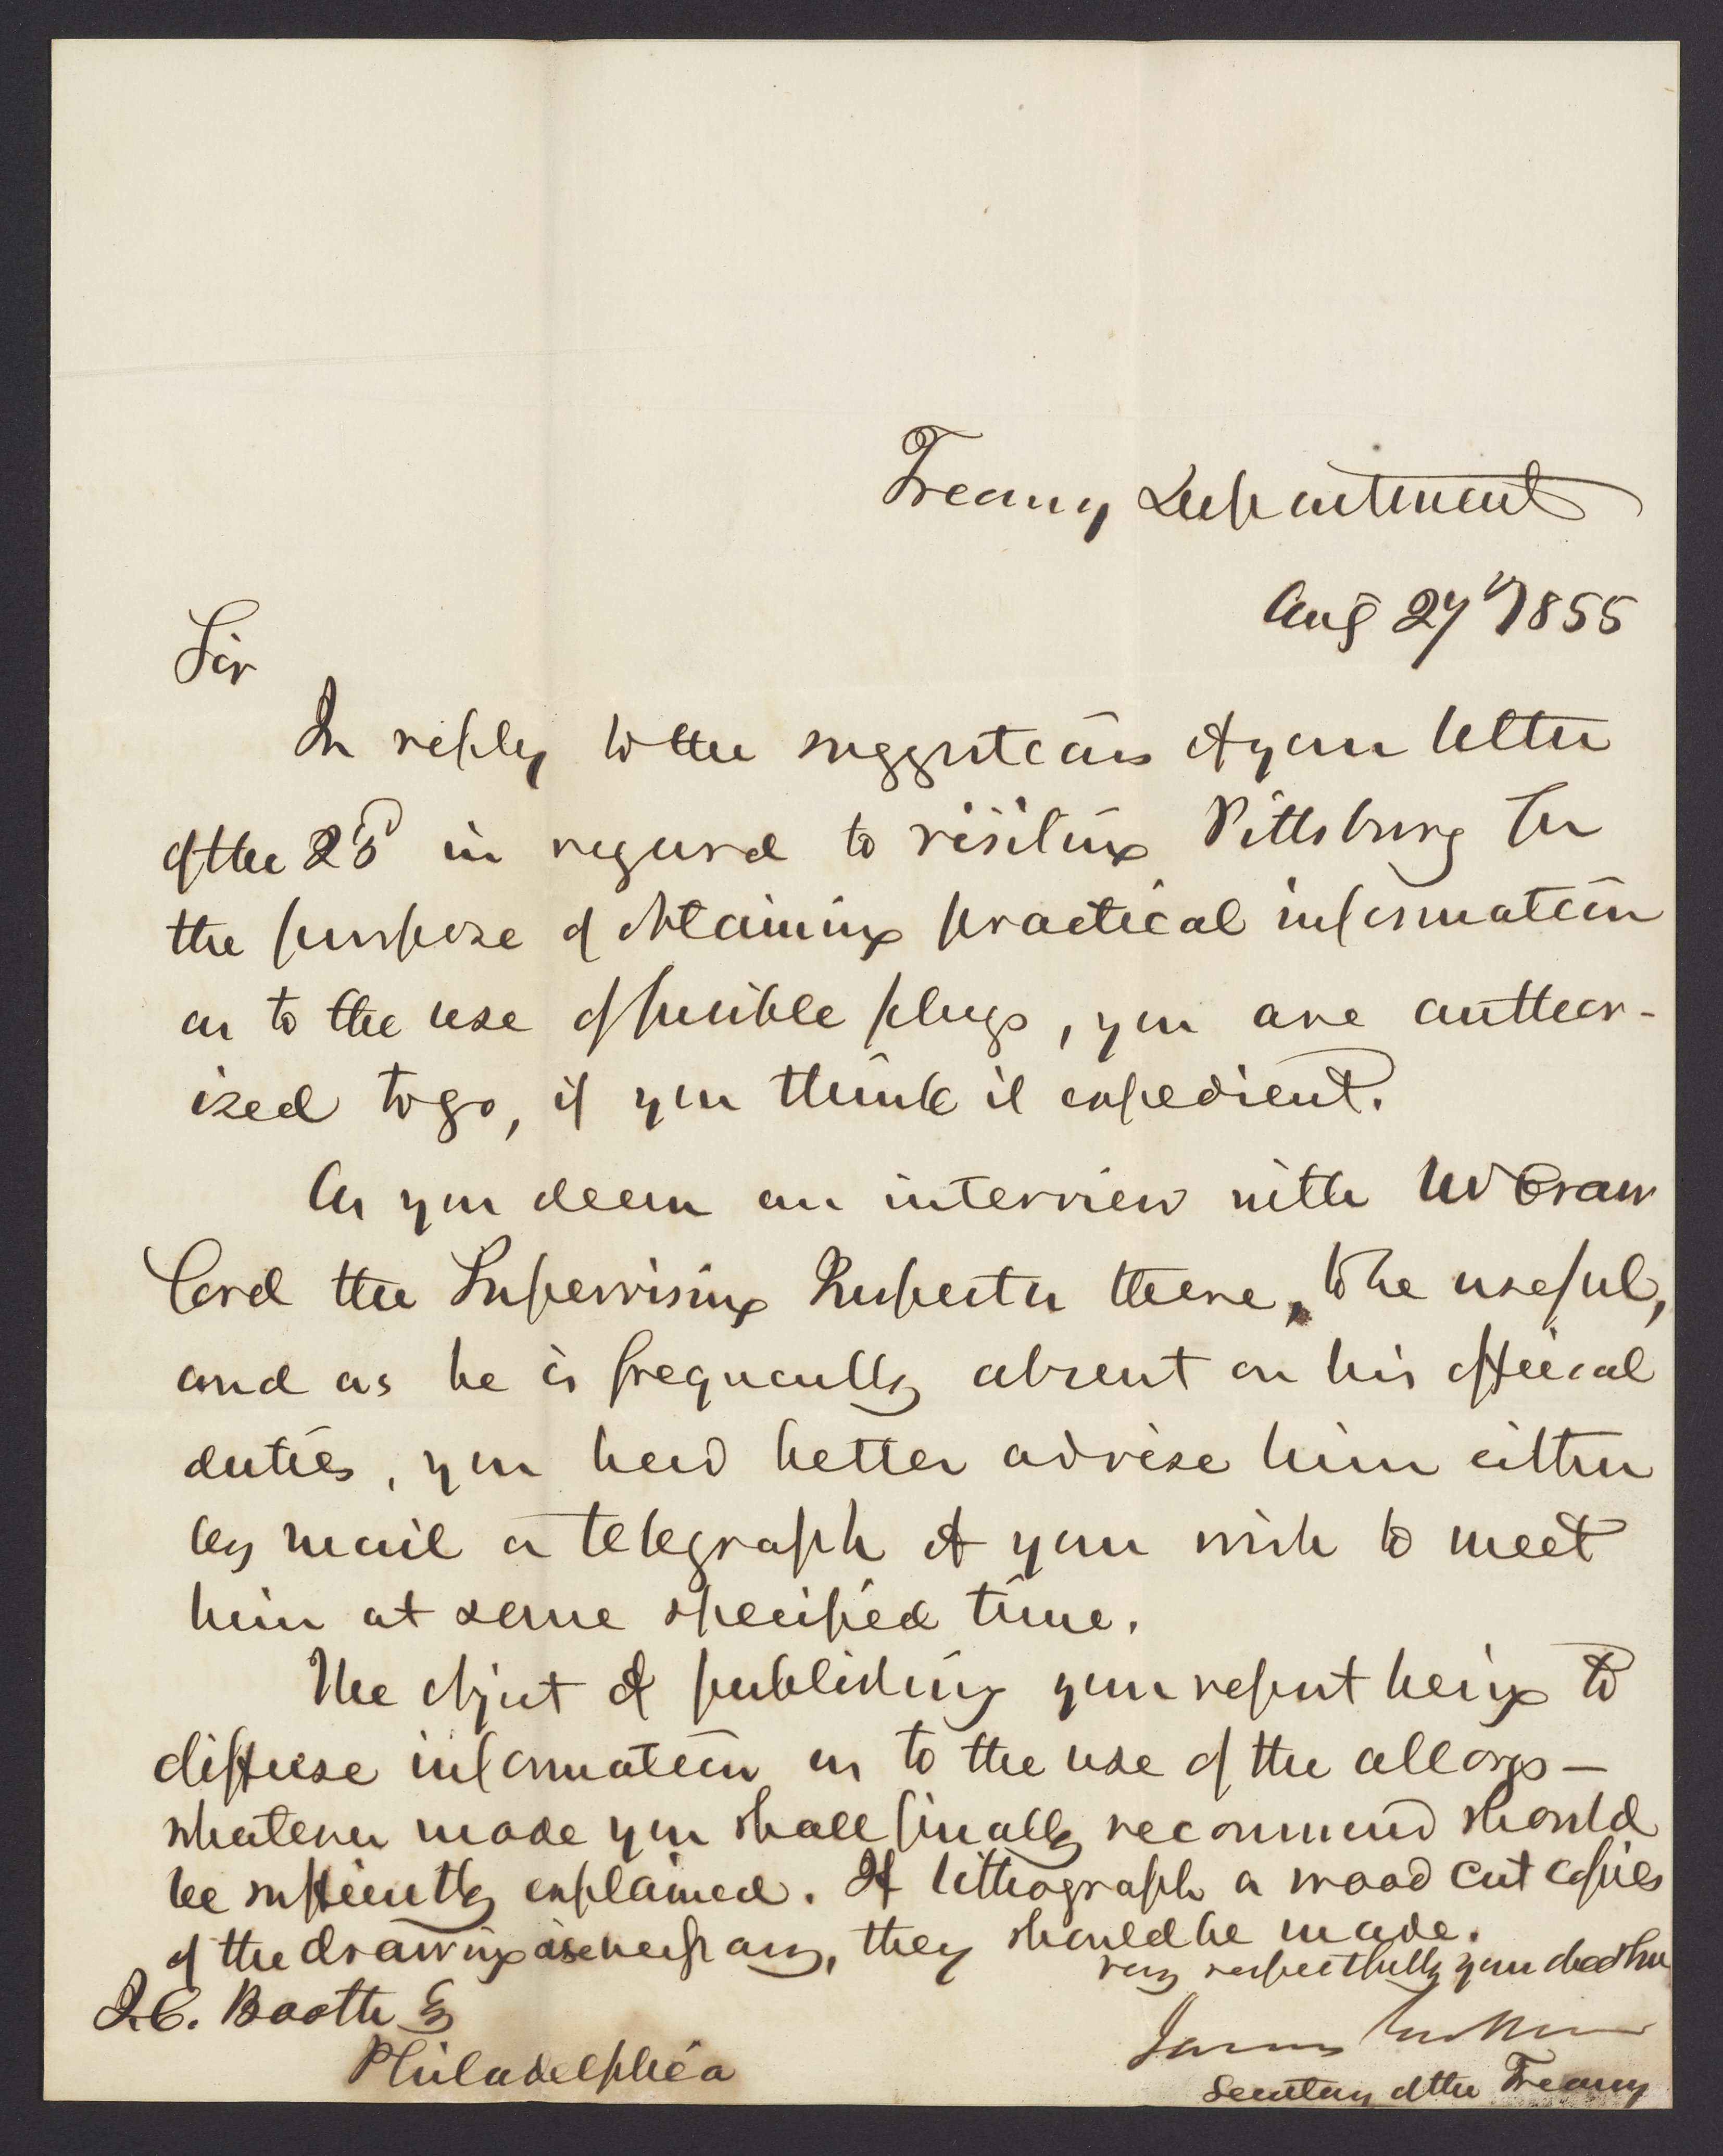 Treasury Department
Aug 27th 1855
Sir
In reply to the suggestions of your letter
of the 23d in regard to visiting Pittsburg for
the purpose of obtaining practical information
as to the use of fusible plugs, you are author-
ized to go, if you think it expedient.
As you deem an interview with Mr Craw
ford the Supervising Inspector there, to be useful,
and as he is frequently absent on his official
duties, you had better advise him either
by mail or telegraph of your wish to meet
him at some specified time.
The object of publishing your report being to
diffuse information as to the use of the alloys —
whatever mode you shall finally recommend should
be sufficiently explained. If lithograph or wood cut copies
of the drawings necessary, they should be made.
very respectfully your obed
J.C. Booth Esq
James Guthrie
Philadelphia
Secretary of the Treasury